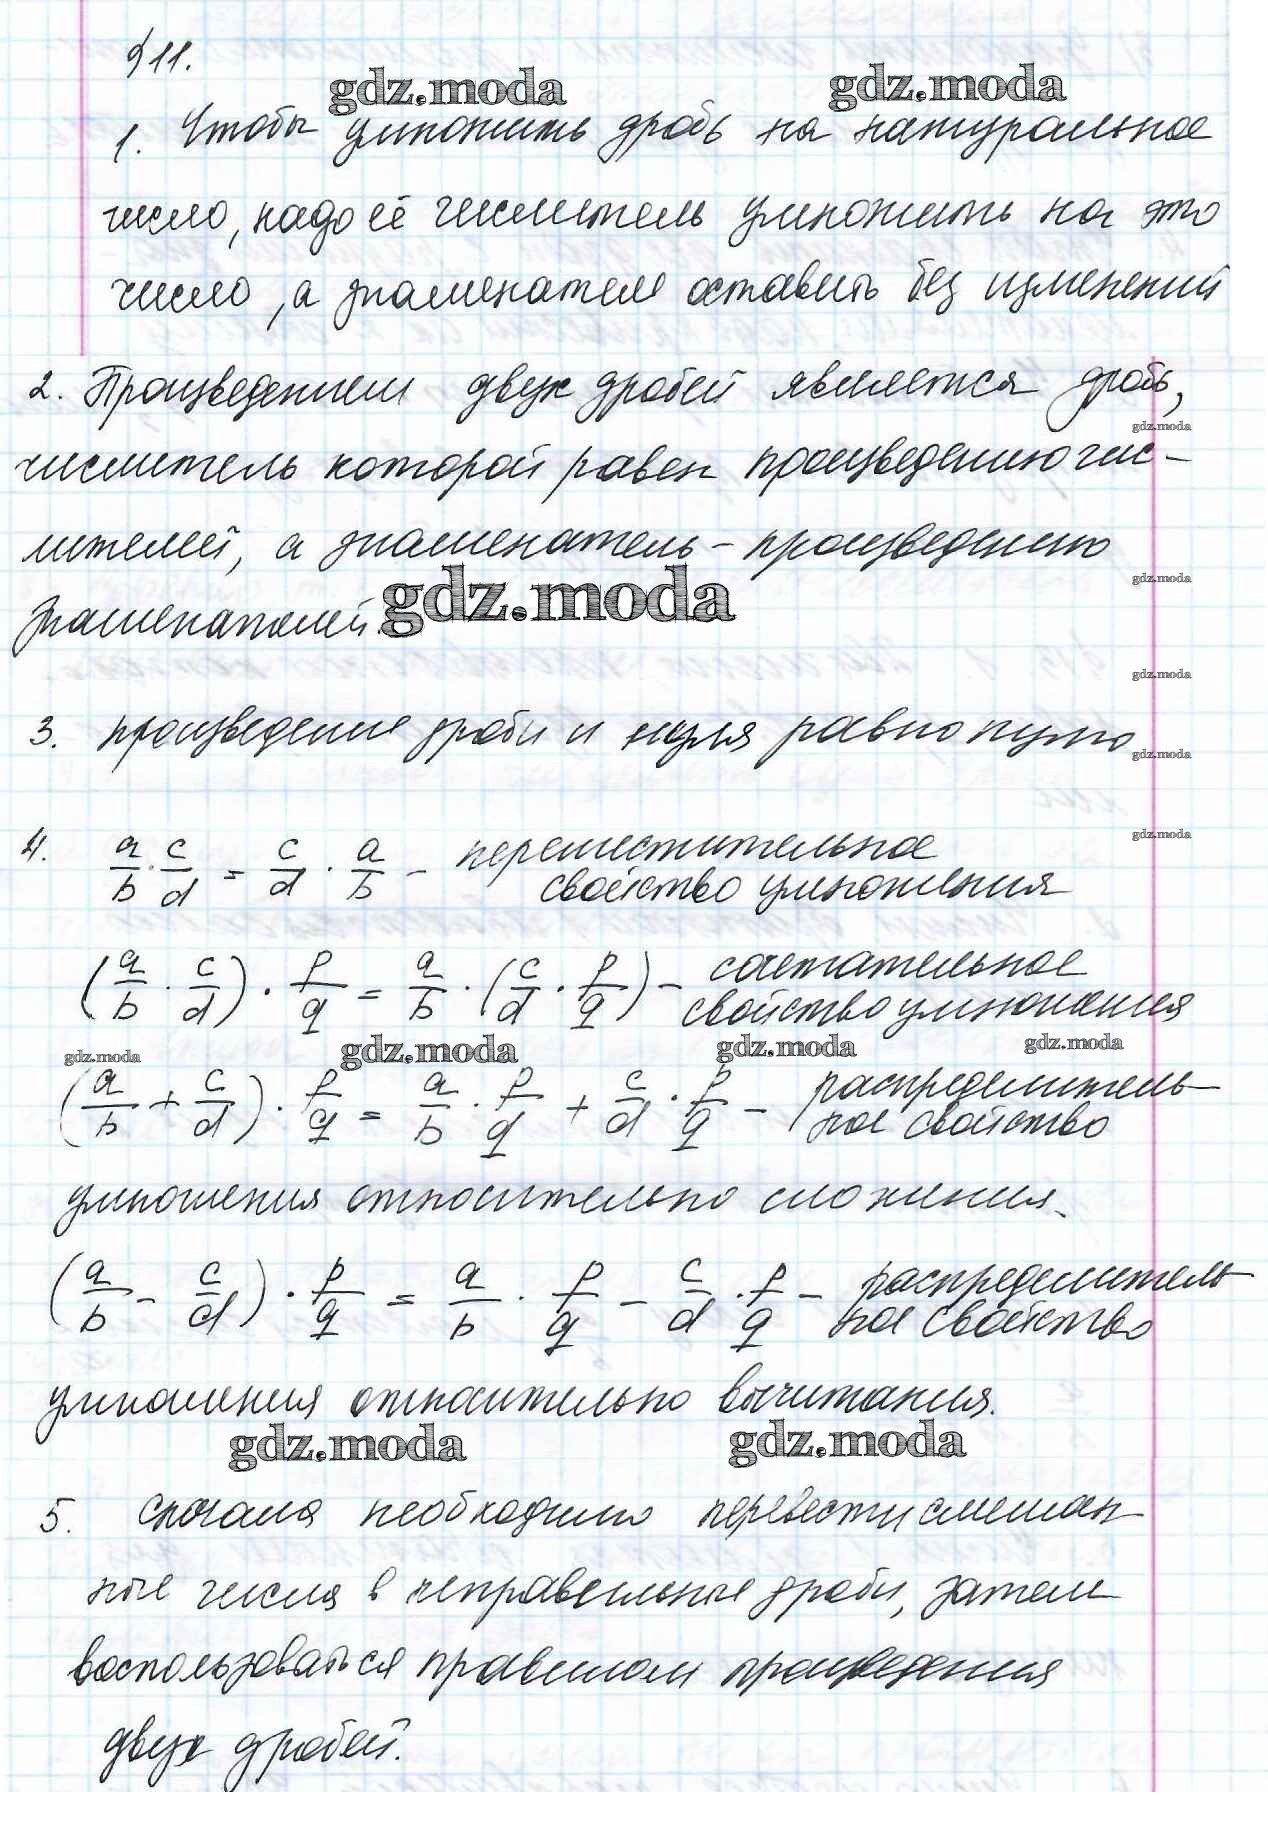 §11.
gdz.moda gdz.moda
1. Чтобы умножить дробь на натуральное
число, надо её числитель умножить на это
число, а знаменател оставить без изменений
2. Произведением двух дробей является дробь,
gdz.moda
числитель которой равен произведению чис-
лителей, а знаменатель – произведению
gdz.moda
знаменателей. gdz.moda
gdz.moda
3. произведение дроби и нуля равно нулю
gdz.moda
gdz.moda
4. a/b · c/d = c/d · a/b – переместительное
свойство умножения
(a/b · c/d) · p/q = a/b · (c/d · p/q) – сочетательное
свойство умножения
gdz.moda gdz.moda gdz.moda gdz.moda
(a/b + c/d) · p/q = a/b · p/q + c/d · p/q – распределитель-
ное свойство
умножения относительно сложения.
(a/b – c/d) · p/q = a/b · p/q – c/d · p/q – распределитель
ное свойство
умножения относительно вычитания.
gdz.moda gdz.moda
5. сначала необходимо перевести смешан-
ные числа в неправильные дроби, затем
воспользоваться правилом произведения
двух дробей.